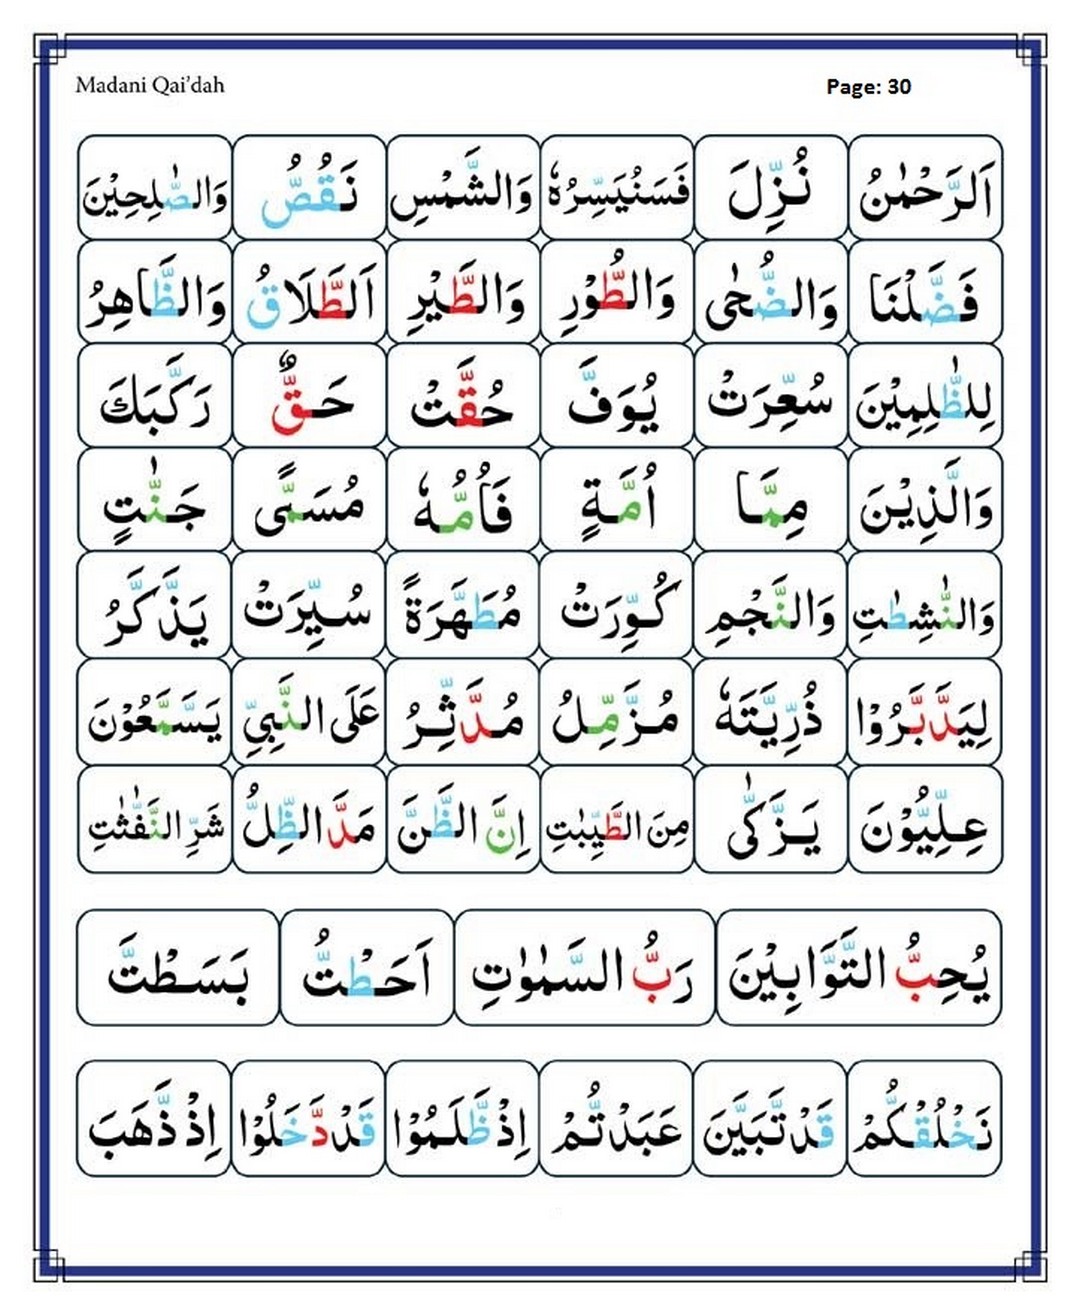 Madani Qai’dah Page: 30
اَلرَّحْمٰنُ نُزِّلَ فَسَنُيَسِّرُهٗ وَالشَّمْسِ نَقُصُّ وَالصّٰلِحِيْنَ
فَضَّلْنَا وَالضُّحٰى وَالطُّوْرِ وَالطَّيْرِ اَلطَّلَاقُ وَالظَّاهِرُ
لِلظّٰلِمِيْنَ سُعِّرَتْ يُوَفَّ حُقَّتْ حَقٌّ رَكَّبَكَ
وَالَّذِيْنَ مِمَّا اُمَّةٍ فَاُمُّهٗ مُسَمًّى جَنّٰتٍ
وَالنّٰشِطٰتِ وَالنَّجْمِ كُوِّرَتْ مُطَهَّرَةً سُيِّرَتْ يَذَّكَّرُ
لِيَدَّبَّرُوْا ذُرِّيَّتَهٗ مُزَّمِّلُ مُدَّثِّرُ عَلَى النَّبِيِّ يَسَّمَّعُوْنَ
عِلِّيُّوْنَ يَزَّكّٰى مِنَ الطَّيِّبٰتِ اِنَّ الظَّنَّ مَدَّ الظِّلَّ شَرِّ النَّفّٰثٰتِ
يُحِبُّ التَّوَّابِيْنَ رَبُّ السَّمٰوٰتِ اَحَطْتُّ بَسَطْتَّ
نَخْلُقْكُّمْ قَدْ تَّبَيَّنَ عَبَدْتُّمْ اِذْ ظَّلَمُوْا قَدْ دَّخَلُوْا اِذْ ذَّهَبَ